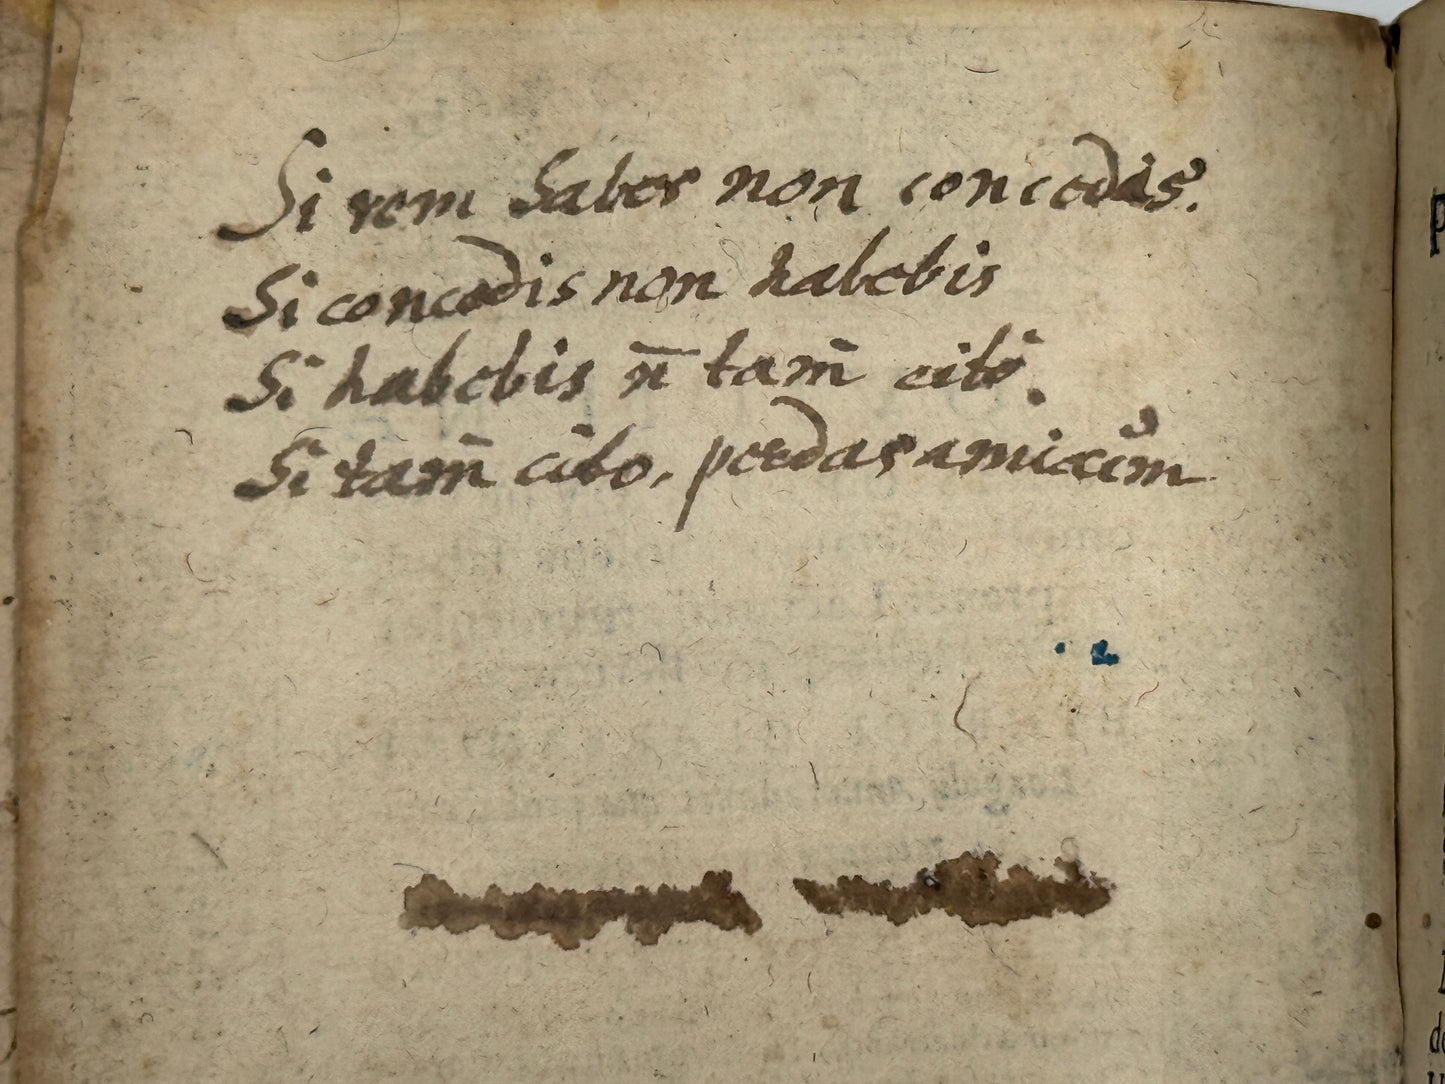 Si rem habes non concedas.
Si concedis non habebis
Si habebis n̄ tam̄ citò.
Si tam̄ citò, perdas amicũm